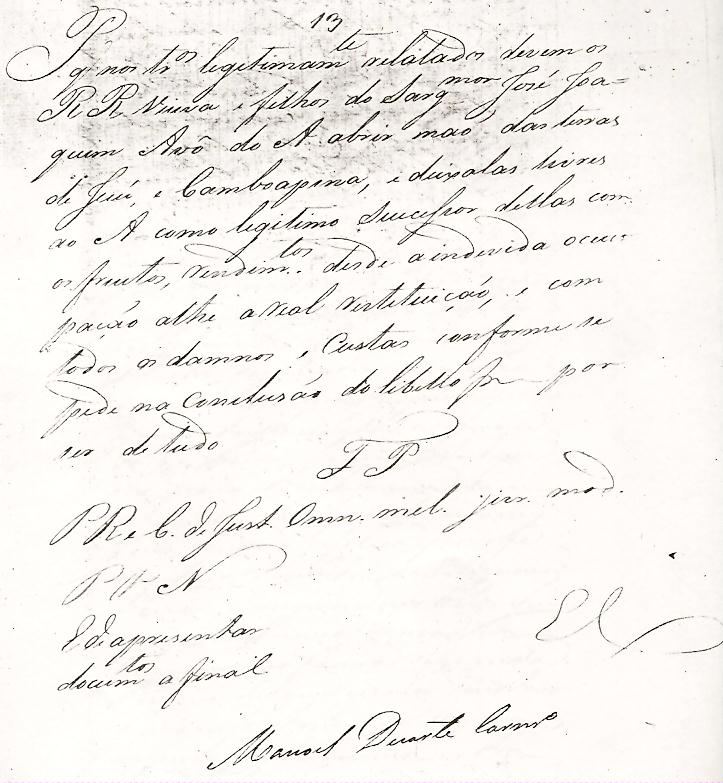 13
P. q' nos tr.os legitimam.te relatados devem os
RR Viuva e filhos do Sarg.mor José Joa=
quim Avô do A abrir mão das terras
de Jucú, e Camboapina, e deixalas livres
ao A como legitimo Successor dellas com
os fructos, rendim.tos desde a indevida occu-
pação athe a real restituição, e com
todos os damnos e Custas conforme se
pede na Conclusão do libello por
ser de tudo
F P
P R e C. de Just. Omn. mel. jur. mod.
P N
E de apresentar
docum.tos a final
Manoel Duarte Carn.ro